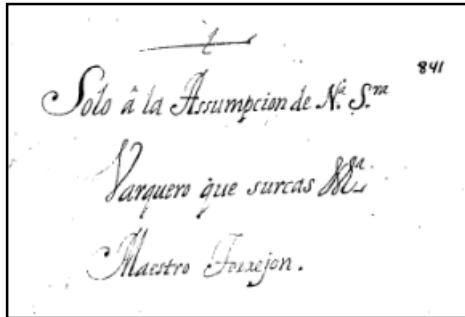 841
Solo â la Assumpcion de N.ª S.ra
Varquero que surcas M.a
Maestro Torrejon.